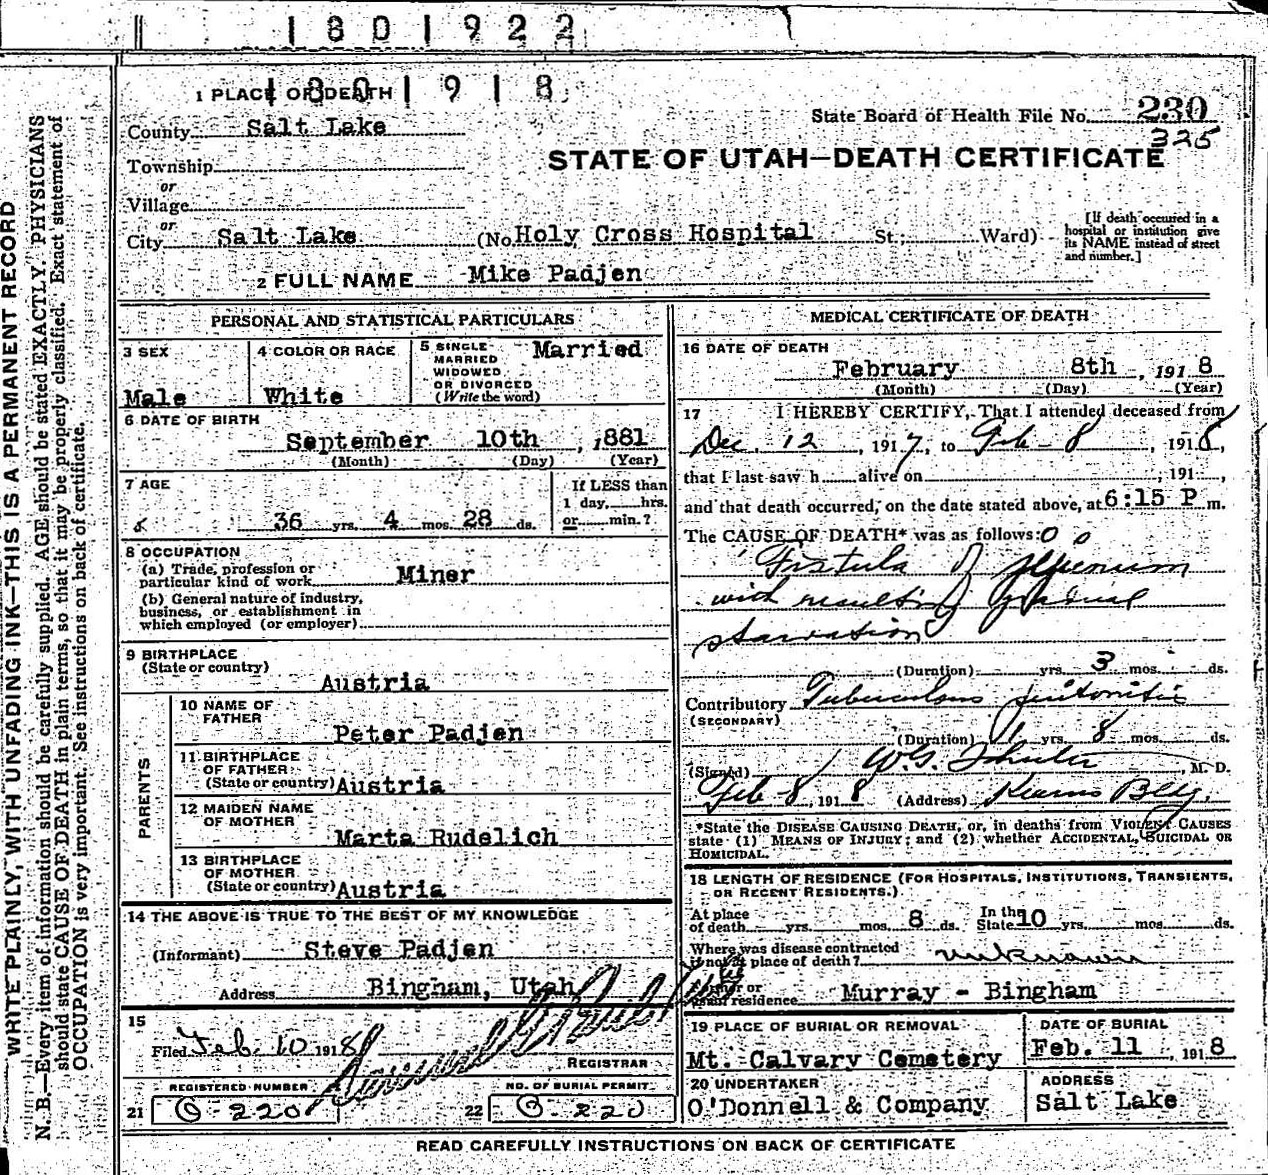 1801922
1801918
1 PLACE OF DEATH
State Board of Health File No. 230
325
County Salt Lake
STATE OF UTAH—DEATH CERTIFICATE
Township
or
Village
or
City Salt Lake (No. Holy Cross Hospital St.; Ward)
[If death occurred in a hospital or institution give its NAME instead of street and number.]
2 FULL NAME Mike Padjen
PERSONAL AND STATISTICAL PARTICULARS
3 SEX
Male
4 COLOR OR RACE
White
5 SINGLE
MARRIED
WIDOWED
OR DIVORCED
(Write the word)
Married
6 DATE OF BIRTH
September 10th, 1881
(Month) (Day) (Year)
7 AGE
36 yrs. 4 mos. 28 ds.
If LESS than
1 day, hrs.
or min.?
8 OCCUPATION
(a) Trade, profession or
particular kind of work Miner
(b) General nature of industry,
business, or establishment in
which employed (or employer)
9 BIRTHPLACE
(State or country)
Austria
PARENTS
10 NAME OF
FATHER
Peter Padjen
11 BIRTHPLACE
OF FATHER
(State or country) Austria
12 MAIDEN NAME
OF MOTHER
Marta Rudelich
13 BIRTHPLACE
OF MOTHER
(State or country) Austria
14 THE ABOVE IS TRUE TO THE BEST OF MY KNOWLEDGE
(Informant) Steve Padjen
Address Bingham, Utah
15
Filed Feb. 10 1918
REGISTRAR
REGISTERED NUMBER
21 0-220
NO. OF BURIAL PERMIT
22 0-220
MEDICAL CERTIFICATE OF DEATH
16 DATE OF DEATH
February 8th, 1918
(Month) (Day) (Year)
17 I HEREBY CERTIFY, That I attended deceased from
Dec. 12, 1917, to Feb-8, 1918,
that I last saw h alive on , 191 ,
and that death occurred, on the date stated above, at 6:15 P m.
The CAUSE OF DEATH* was as follows:
Fistula of jejunum
with resulting gradual
starvation
(Duration) yrs. 3 mos. ds.
Contributory Tuberculous peritonitis
(SECONDARY)
(Duration) 1 yrs. 8 mos. ds.
(Signed) W.G. , M. D.
Feb-8, 1918 (Address) Kearns Bldg.
*State the DISEASE CAUSING DEATH, or, in deaths from VIOLENT CAUSES
state (1) MEANS OF INJURY; and (2) whether ACCIDENTAL, SUICIDAL OR
HOMICIDAL.
18 LENGTH OF RESIDENCE (FOR HOSPITALS, INSTITUTIONS, TRANSIENTS,
OR RECENT RESIDENTS.)
At place
of death yrs. mos. 8 ds. In the State 10 yrs. mos. ds.
Where was disease contracted
if not at place of death? unknown
Former or
usual residence Murray - Bingham
19 PLACE OF BURIAL OR REMOVAL
Mt. Calvary Cemetery
DATE OF BURIAL
Feb. 11, 1918
20 UNDERTAKER
O'Donnell & Company
ADDRESS
Salt Lake
READ CAREFULLY INSTRUCTIONS ON BACK OF CERTIFICATE
WRITE PLAINLY, WITH UNFADING INK—THIS IS A PERMANENT RECORD
N. B.—Every item of information should be carefully supplied. AGE should be stated EXACTLY. PHYSICIANS
should state CAUSE OF DEATH in plain terms, so that it may be properly classified. Exact statement of
OCCUPATION is very important. See instructions on back of certificate.